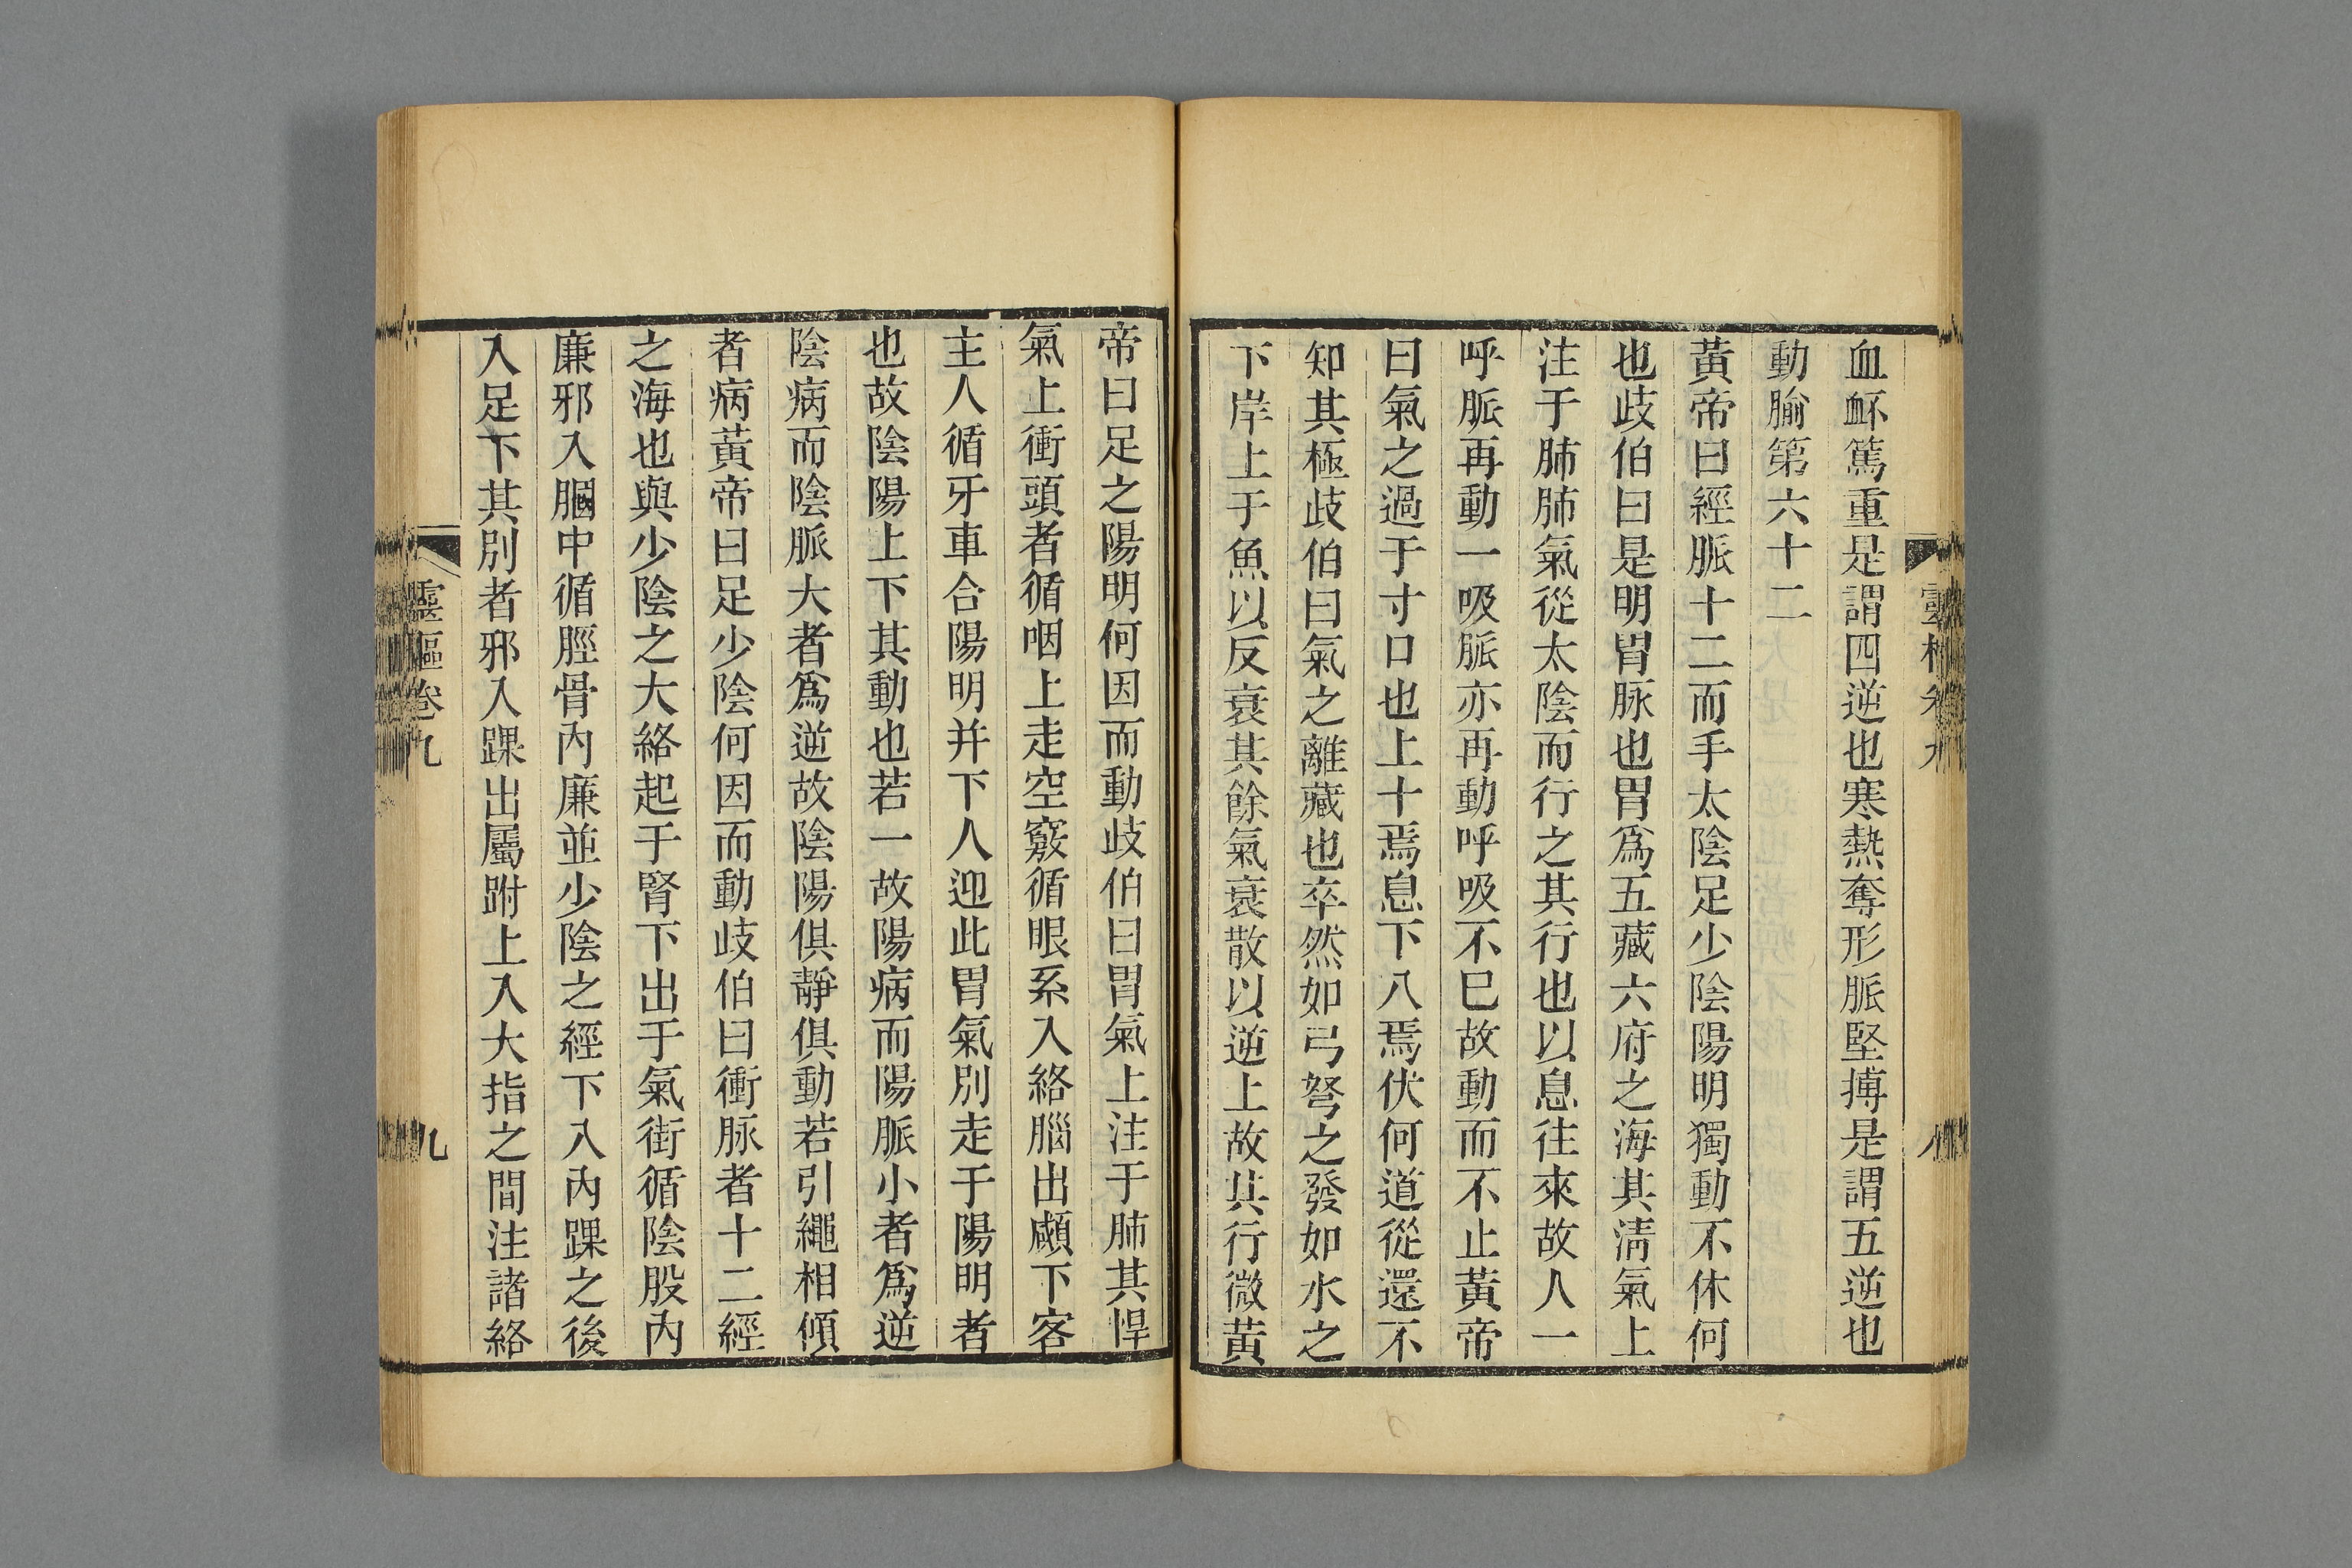 靈樞卷九 八
血衃篤重是謂四逆也寒熱奪形脈堅搏是謂五逆也
動腧第六十二
黃帝曰經脈十二而手太陰足少陰陽明獨動不休何
也歧伯曰是明胃脉也胃爲五藏六府之海其淸氣上
注于肺肺氣從太陰而行之其行也以息往來故人一
呼脈再動一吸脈亦再動呼吸不巳故動而不止黃帝
曰氣之過于寸口也上十焉息下八焉伏何道從還不
知其極歧伯曰氣之離藏也卒然如弓弩之發如水之
下岸上于魚以反衰其餘氣衰散以逆上故其行微黃
帝曰足之陽明何因而動歧伯曰胃氣上注于肺其悍
氣上衝頭者循咽上走空竅循眼系入絡腦出顑下客
主人循牙車合陽明并下人迎此胃氣別走于陽明者
也故陰陽上下其動也若一故陽病而陽脈小者爲逆
陰病而陰脈大者爲逆故陰陽俱靜俱動若引繩相傾
者病黃帝曰足少陰何因而動歧伯曰衝脉者十二經
之海也與少陰之大絡起于腎下出于氣街循陰股內
廉邪入膕中循脛骨內廉並少陰之經下入內踝之後
入足下其別者邪入踝出屬跗上入大指之間注諸絡
靈樞卷九 九